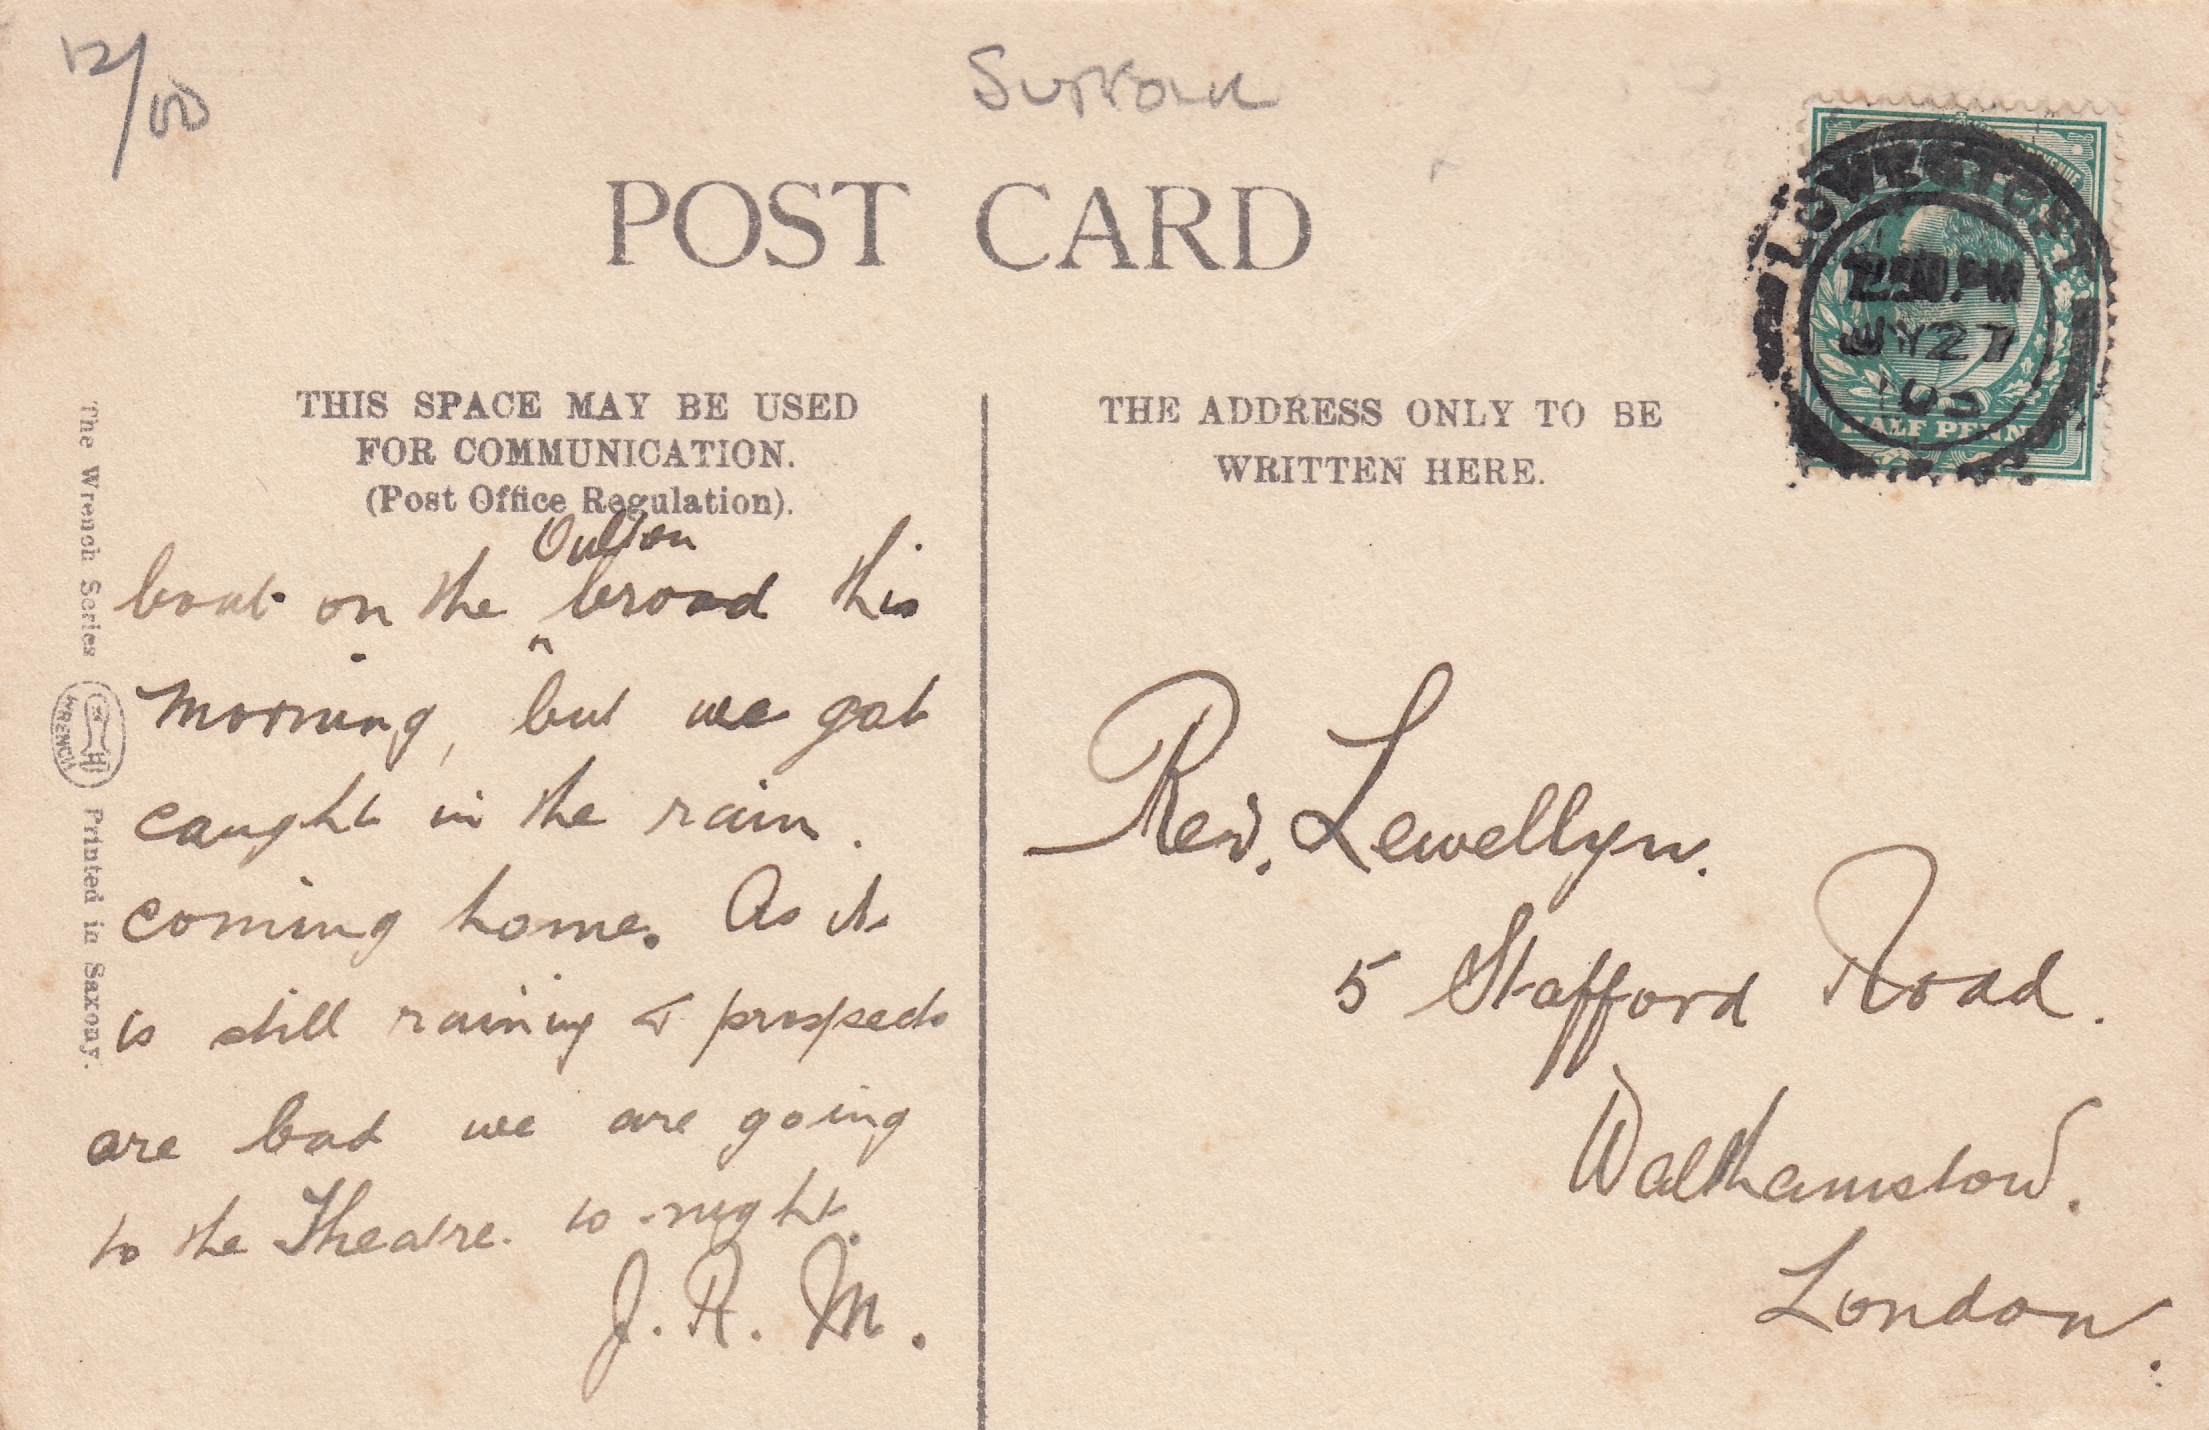 12/00
Suffolk
POST CARD
LOWESTOFT
MY 27
HALF PENNY
THIS SPACE MAY BE USED
FOR COMMUNICATION.
(Post Office Regulation).
THE ADDRESS ONLY TO BE
WRITTEN HERE.
The Wrench Series
WRENCH
Printed in Saxony.
Oulton
boat on the ^ broad this
morning, but we got
caught in the rain.
coming home. As it
is still raining & prospects
are bad we are going
to the Theatre. to-night.
J. R. M.
Rev. Lewellyn.
5 Stafford Road.
Walthamstow.
London.